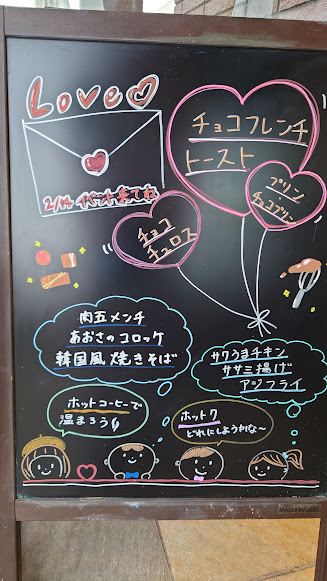 Love
2/14 イベント来てね
チョコフレンチ
トースト
プリン
チョコプリン
チョコ
チュロス
肉五メンチ
あおさのコロッケ
韓国風焼きそば
サクうまチキン
ササミ揚げ
アジフライ
ホットコーヒーで
温まろう
ホットク
どれにしようかな～